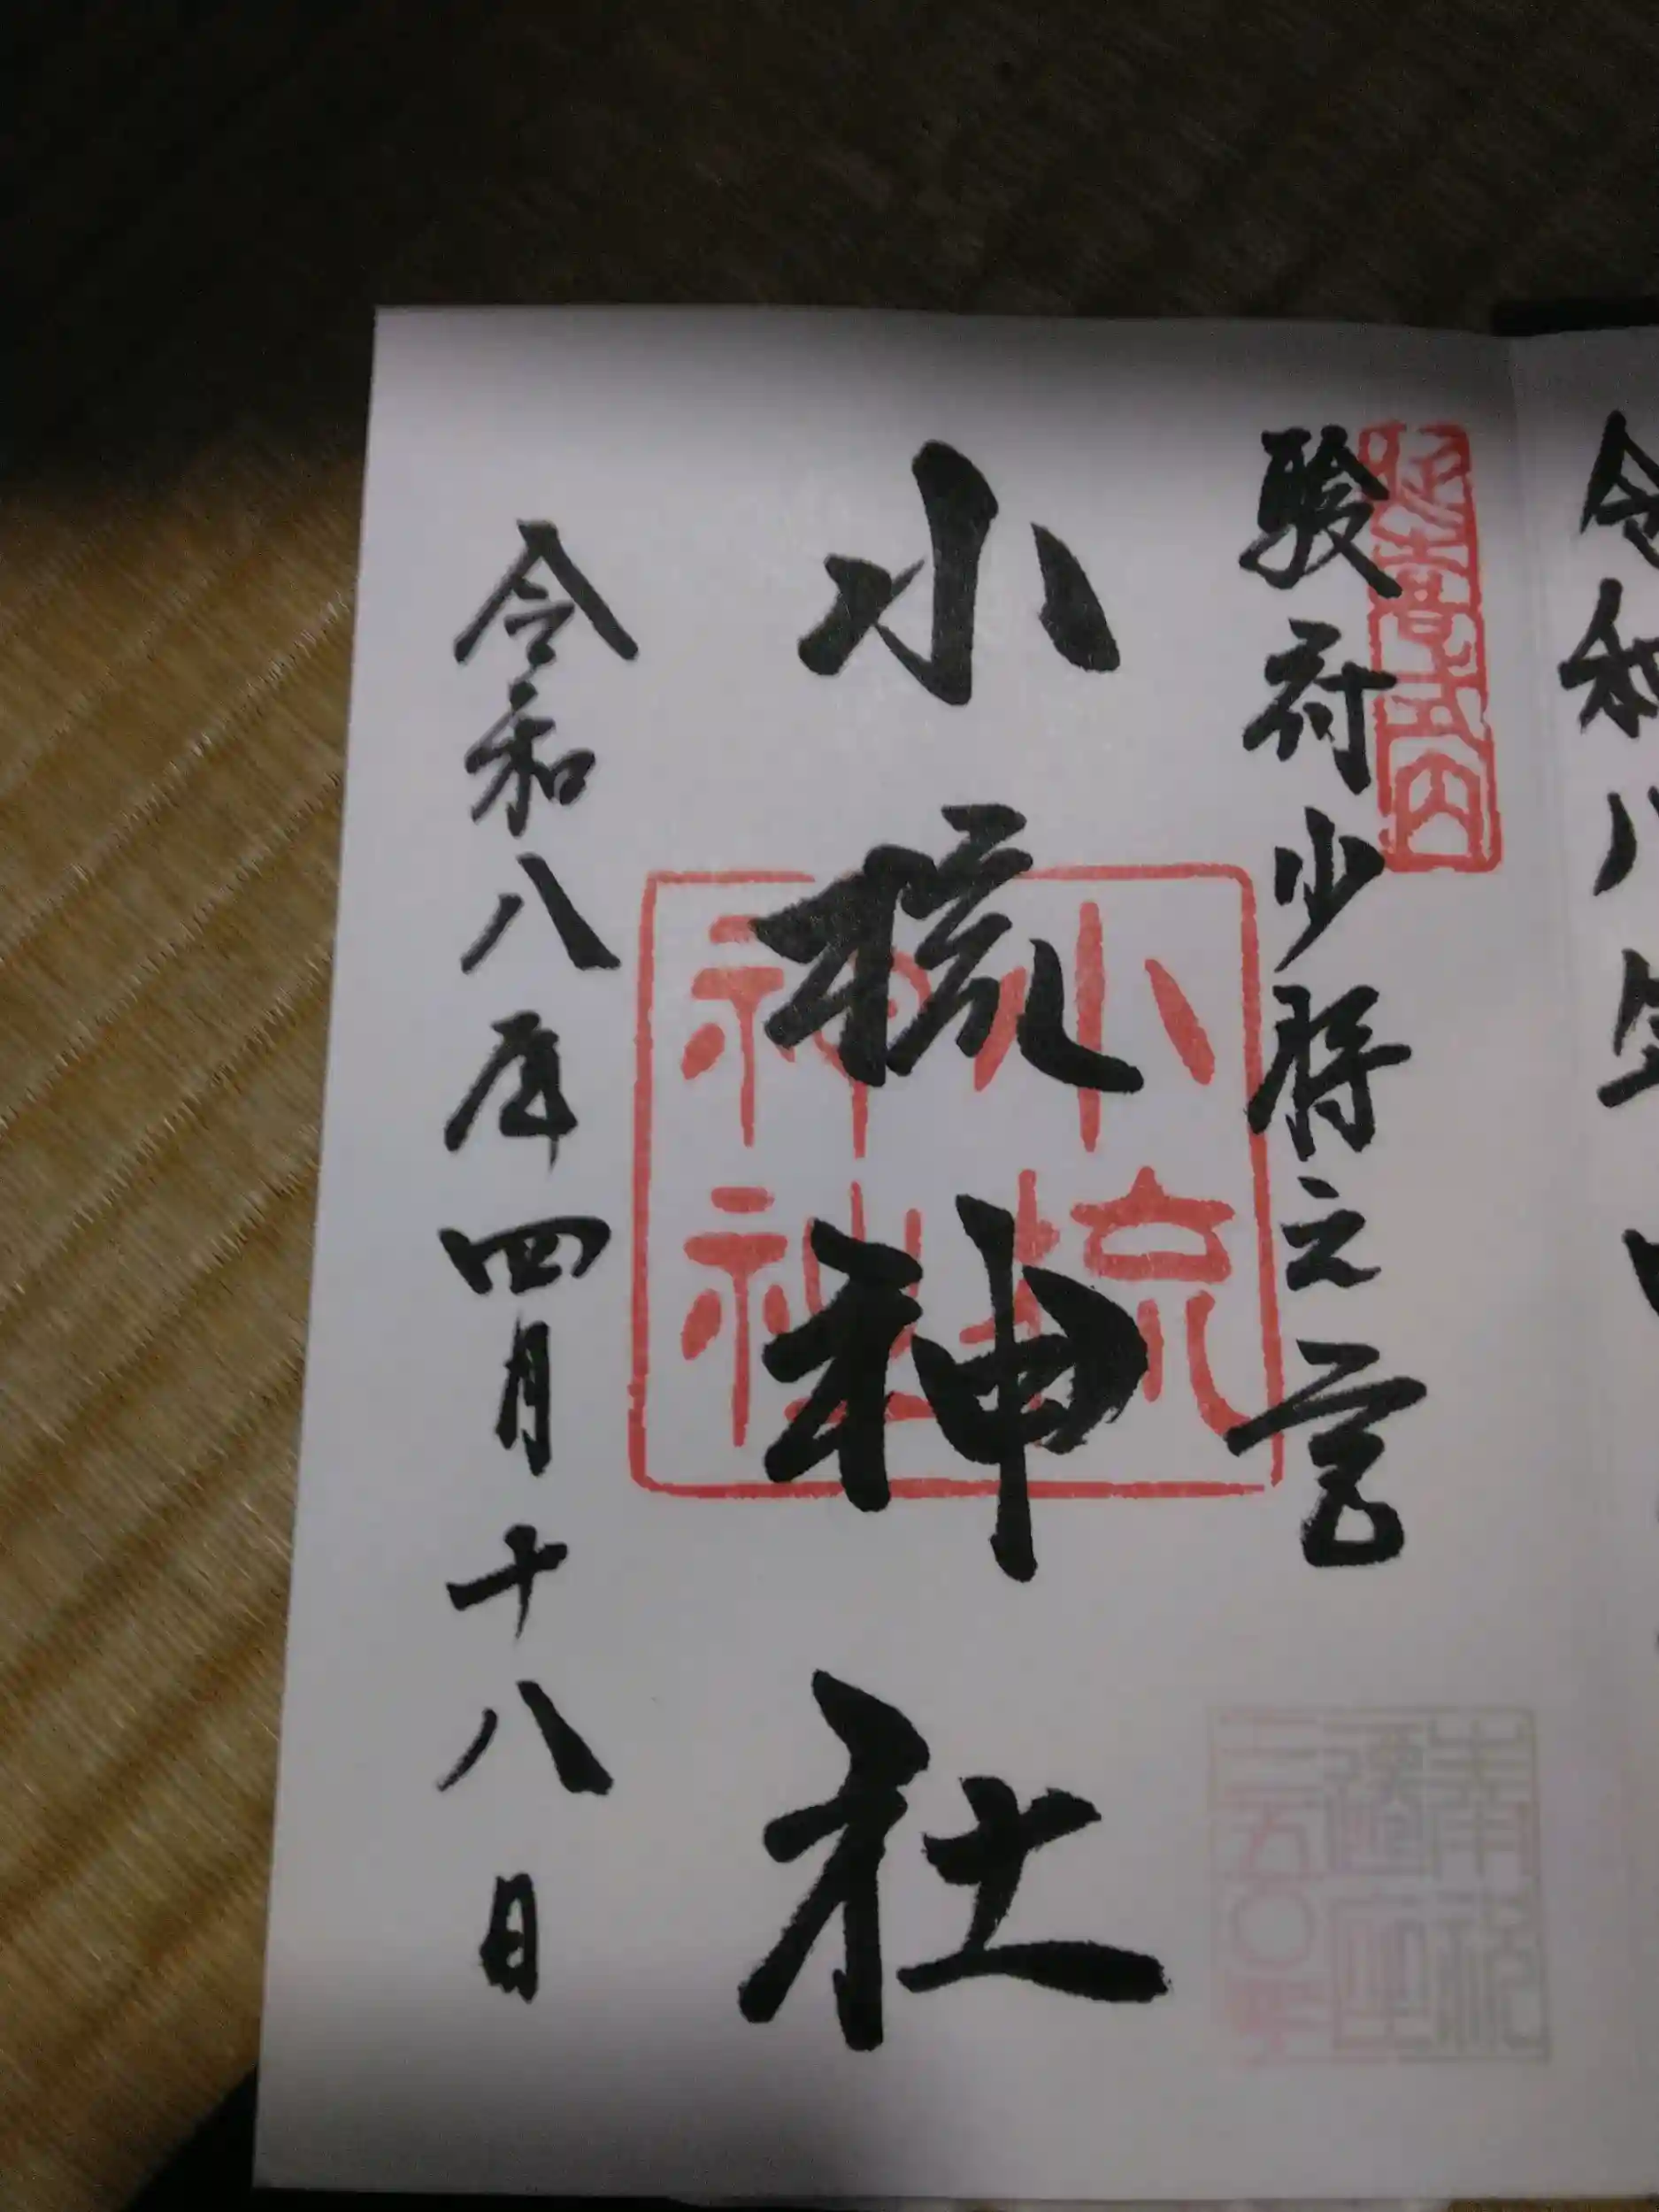 延喜式内
駿府少将之宮
小梳神社
小梳神社
令和八年四月十八日
令和八年